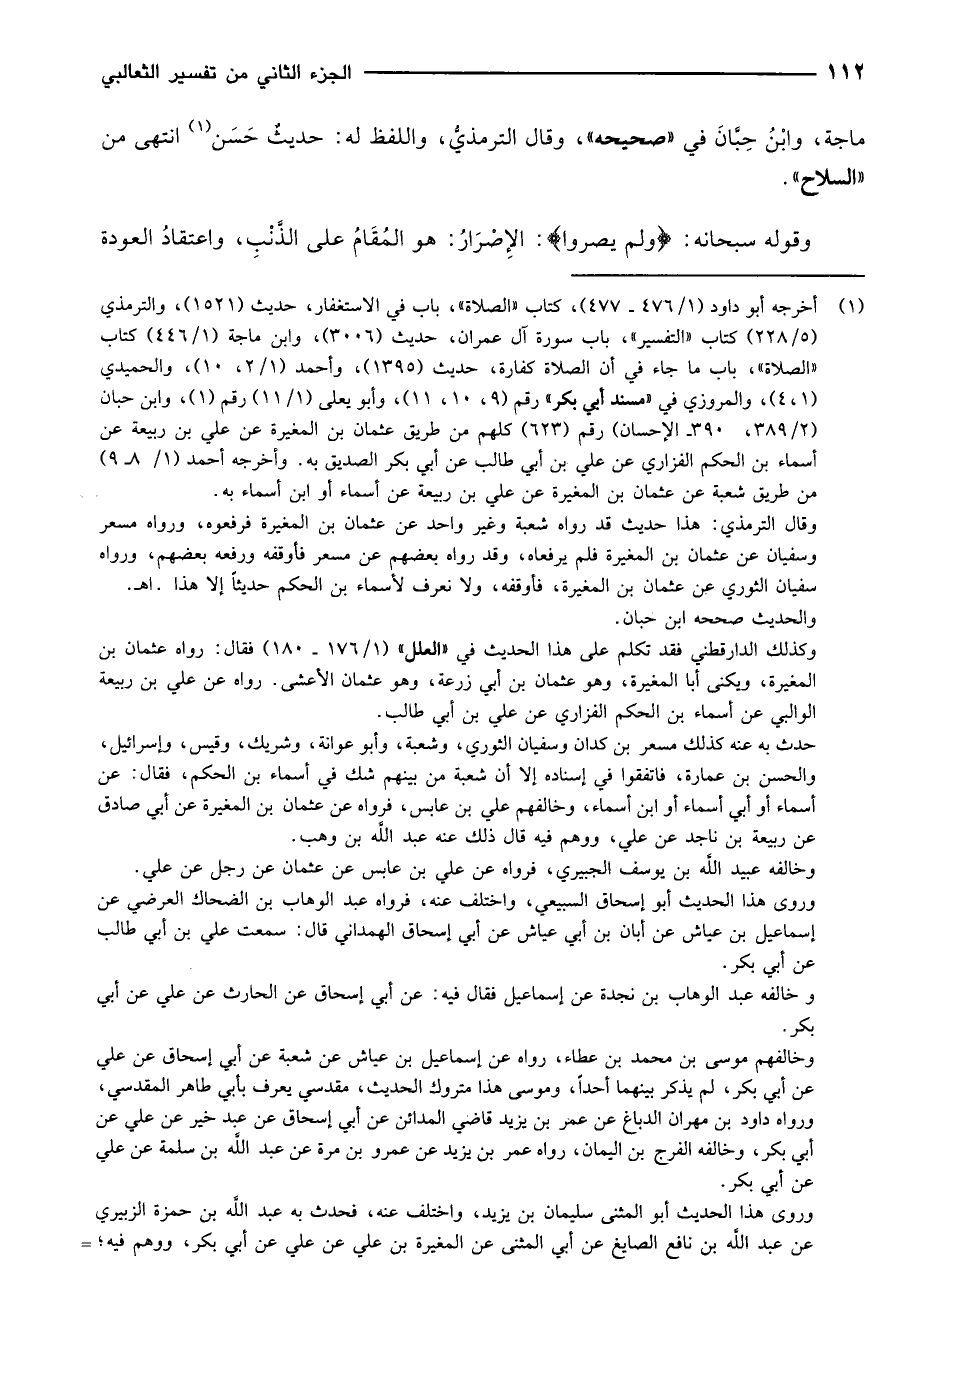 ١١٢ ــــــــــــــــــــ الجزء الثاني من تفسير الثعالبي
ماجة، وابْنُ حِبَّانَ في «صحيحه»، وقال الترمذيُّ، واللفظ له: حديثٌ حَسَن(١) انتهى من
«السلاح».
وقوله سبحانه: ﴿ولم يصروا﴾: الإِصْرَارُ: هو المُقَامُ على الذَّنْبِ، واعتقادُ العودة
(١) أخرجه أبو داود (١/ ٤٧٦ ـ ٤٧٧)، كتاب «الصلاة»، باب في الاستغفار، حديث (١٥٢١)، والترمذي
(٥/ ٢٢٨) كتاب «التفسير»، باب سورة آل عمران، حديث (٣٠٠٦)، وابن ماجة (١/ ٤٤٦) كتاب
«الصلاة»، باب ما جاء في أن الصلاة كفارة، حديث (١٣٩٥)، وأحمد (١/ ٢، ١٠)، والحميدي
(٤،١)، والمروزي في «مسند أبي بكر» رقم (٩، ١٠، ١١)، وأبو يعلى (١/ ١١) رقم (١)، وابن حبان
(٢/ ٣٨٩، ٣٩٠ـ الإحسان) رقم (٦٢٣) كلهم من طريق عثمان بن المغيرة عن علي بن ربيعة عن
أسماء بن الحكم الفزاري عن علي بن أبي طالب عن أبي بكر الصديق به. وأخرجه أحمد (١/ ٨ـ ٩)
من طريق شعبة عن عثمان بن المغيرة عن علي بن ربيعة عن أسماء أو ابن أسماء به.
وقال الترمذي: هذا حديث قد رواه شعبة وغير واحد عن عثمان بن المغيرة فرفعوه، ورواه مسعر
وسفيان عن عثمان بن المغيرة فلم يرفعاه، وقد رواه بعضهم عن مسعر فأوقفه ورفعه بعضهم، ورواه
سفيان الثوري عن عثمان بن المغيرة، فأوقفه، ولا نعرف لأسماء بن الحكم حديثاً إلا هذا .اهـ.
والحديث صححه ابن حبان.
وكذلك الدارقطني فقد تكلم على هذا الحديث في «العلل» (١/ ١٧٦ ـ ١٨٠) فقال: رواه عثمان بن
المغيرة، ويكنى أبا المغيرة، وهو عثمان بن أبي زرعة، وهو عثمان الأعشى. رواه عن علي بن ربيعة
الوالبي عن أسماء بن الحكم الفزاري عن علي بن أبي طالب.
حدث به عنه كذلك مسعر بن كدان وسفيان الثوري، وشعبة، وأبو عوانة، وشريك، وقيس، وإسرائيل،
والحسن بن عمارة، فاتفقوا في إسناده إلا أن شعبة من بينهم شك في أسماء بن الحكم، فقال: عن
أسماء أو أبي أسماء أو ابن أسماء، وخالفهم علي بن عابس، فرواه عن عثمان بن المغيرة عن أبي صادق
عن ربيعة بن ناجد عن علي، ووهم فيه قال ذلك عنه عبد اللَّه بن وهب.
وخالفه عبيد اللَّه بن يوسف الجبيري، فرواه عن علي بن عابس عن عثمان عن رجل عن علي.
وروى هذا الحديث أبو إسحاق السبيعي، واختلف عنه، فرواه عبد الوهاب بن الضحاك العرضي عن
إسماعيل بن عياش عن أبان بن أبي عياش عن أبي إسحاق الهمداني قال: سمعت علي بن أبي طالب
عن أبي بكر.
و خالفه عبد الوهاب بن نجدة عن إسماعيل فقال فيه: عن أبي إسحاق عن الحارث عن علي عن أبي
بكر.
وخالفهم موسى بن محمد بن عطاء، رواه عن إسماعيل بن عياش عن شعبة عن أبي إسحاق عن علي
عن أبي بكر، لم يذكر بينهما أحداً، وموسى هذا متروك الحديث، مقدسي يعرف بأبي طاهر المقدسي،
ورواه داود بن مهران الدباغ عن عمر بن يزيد قاضي المدائن عن أبي إسحاق عن عبد خير عن علي عن
أبي بكر، وخالفه الفرج بن اليمان، رواه عمر بن يزيد عن عمرو بن مرة عن عبد اللَّه بن سلمة عن علي
عن أبي بكر.
وروى هذا الحديث أبو المثنى سليمان بن يزيد، واختلف عنه، فحدث به عبد اللَّه بن حمزة الزبيري
عن عبد اللَّه بن نافع الصايغ عن أبي المثنى عن المغيرة بن علي عن علي عن أبي بكر، ووهم فيه؛ =